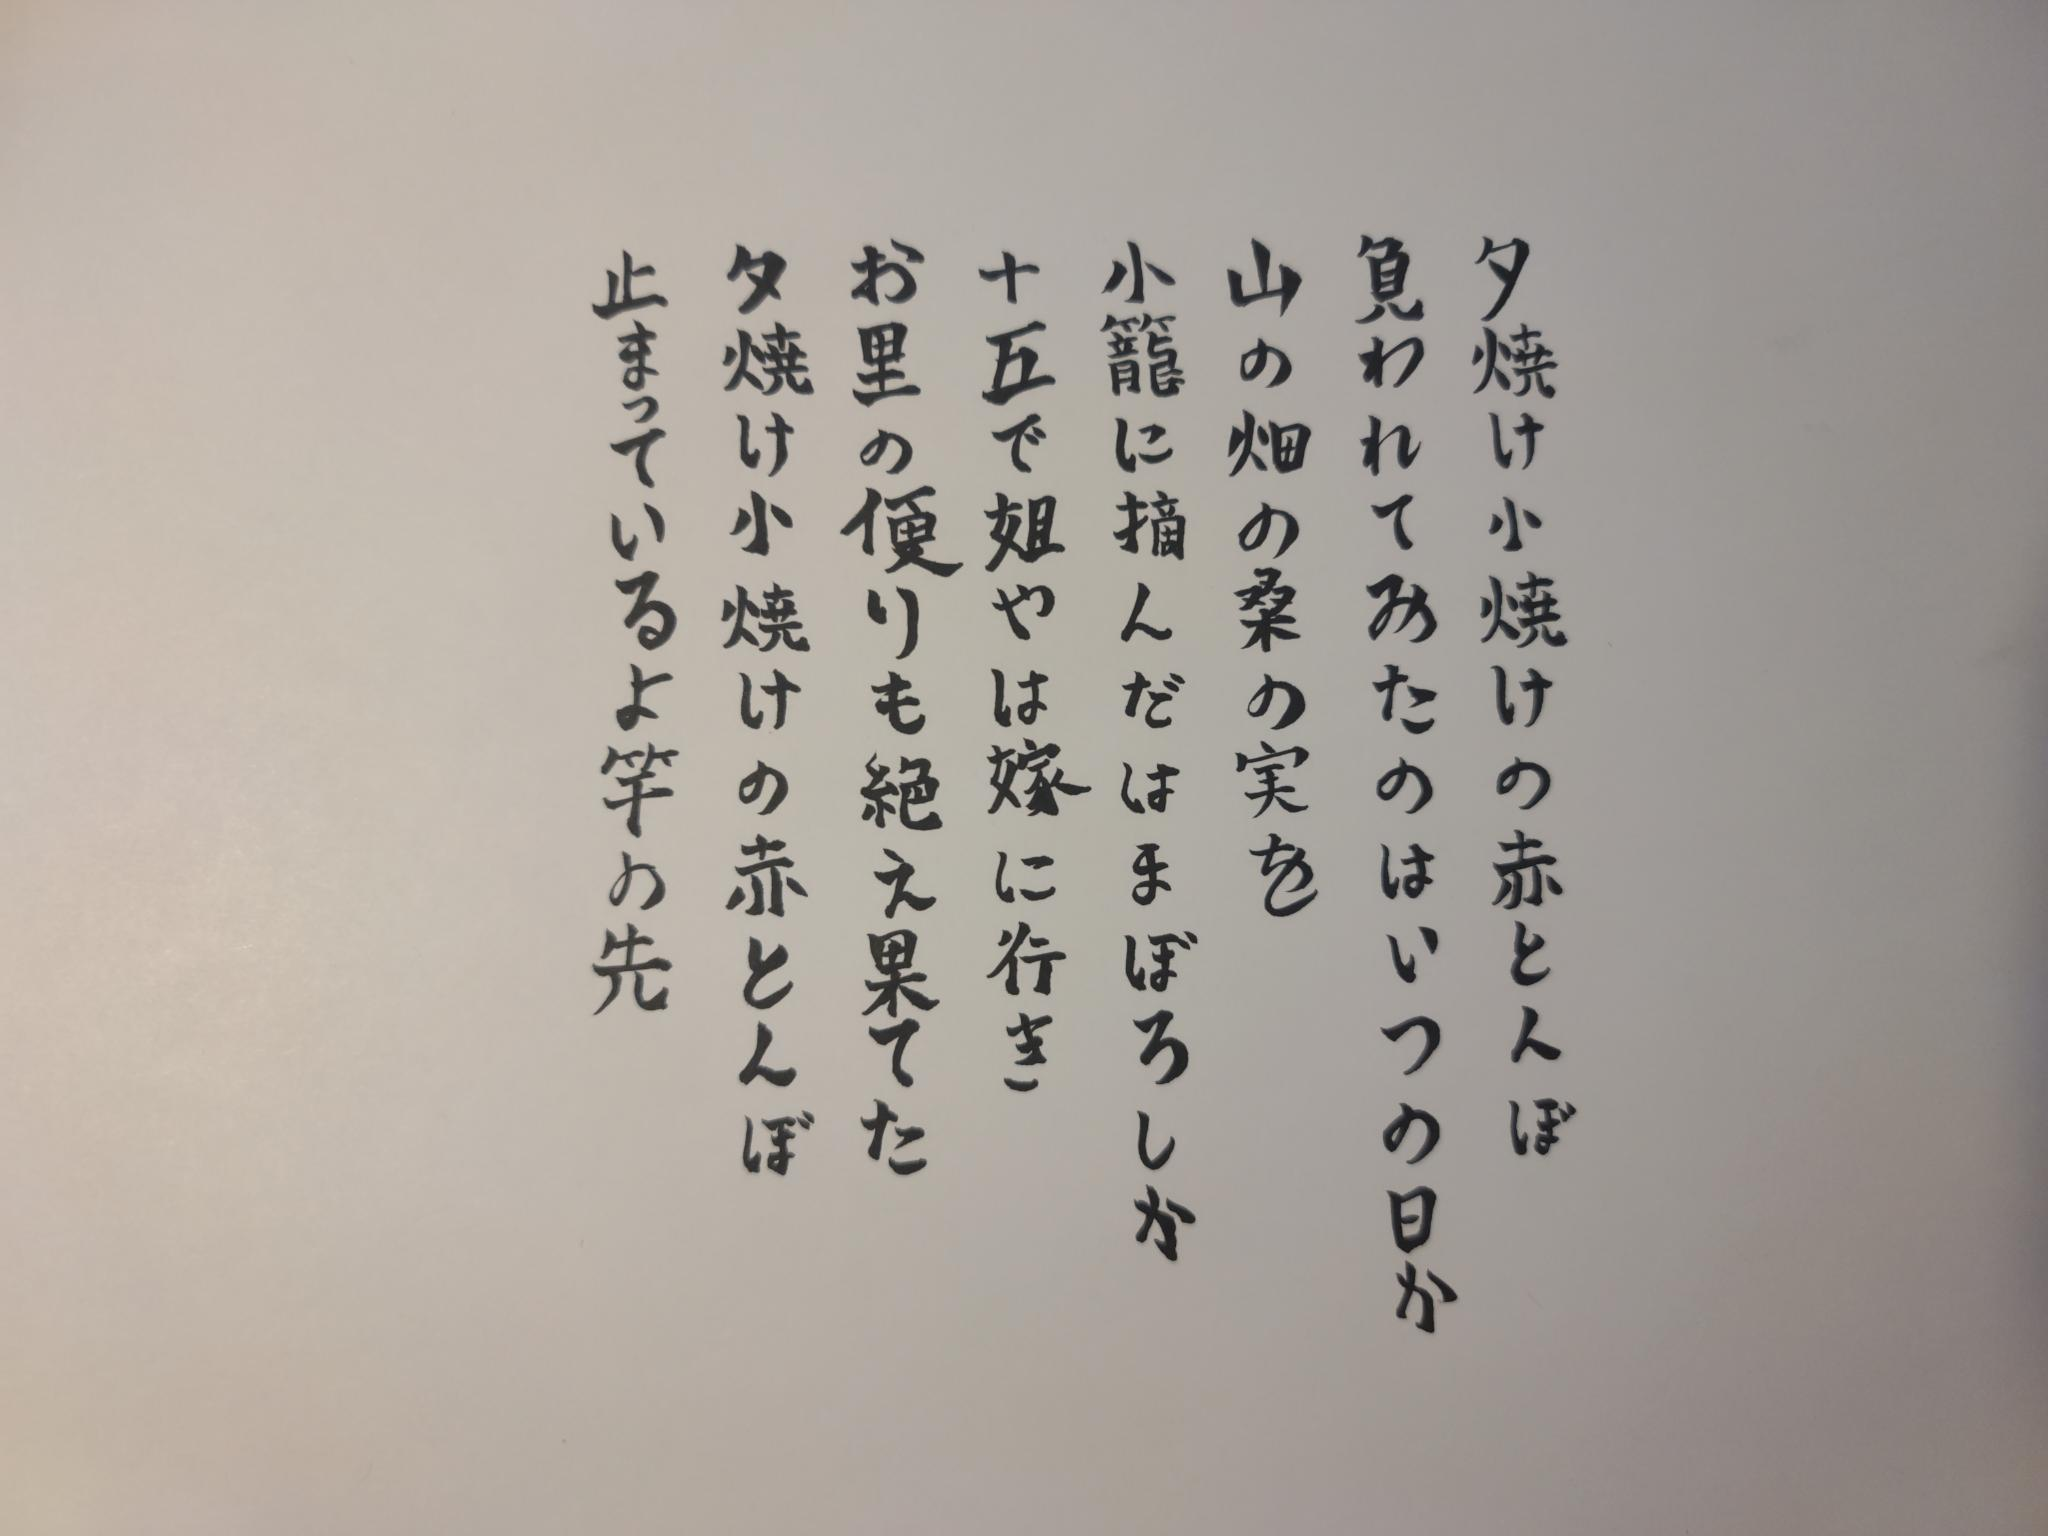 夕焼け小焼けの赤とんぼ
負われてみたのはいつの日か
山の畑の桑の実を
小籠に摘んだはまぼろしか
十五で姐やは嫁に行き
お里の便りも絶え果てた
夕焼け小焼けの赤とんぼ
止まっているよ竿の先